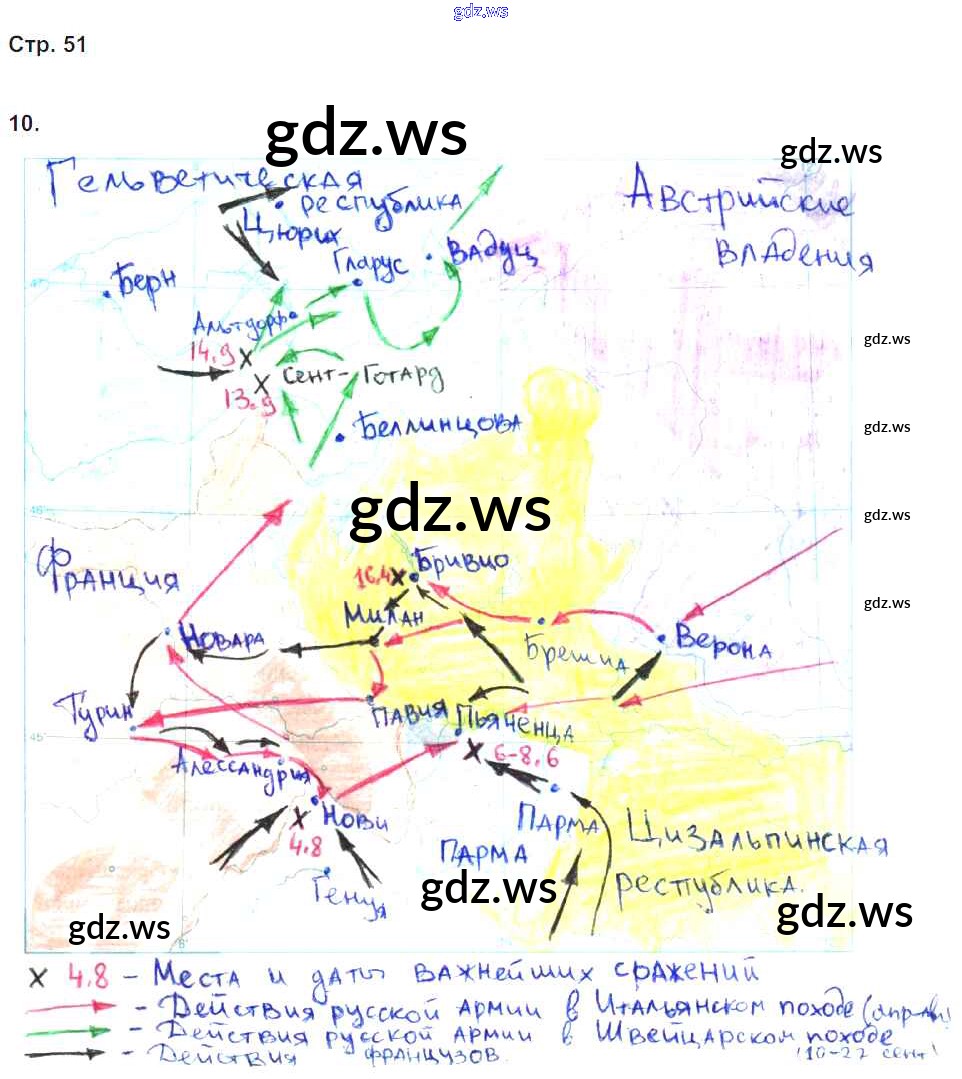 gdz.ws
Стр. 51
10.
gdz.ws
gdz.ws
Гельветическая
республика
Австрийские
владения
Цюрих
Гларус
Вадуц
Берн
Альтдорф
14.9
gdz.ws
Сент-Готард
13.9
Беллинцова
gdz.ws
46°
gdz.ws
gdz.ws
Франция
Бривио
16.4
gdz.ws
Милан
Новара
Верона
Брешиа
Турин
Павия
Пьяченца
45°
6-8.6
Алессандрия
Нови
Парма
Цизальпинская
республика.
4.8
Парма
Генуя
gdz.ws
gdz.ws
gdz.ws
8°
х 4.8 - Места и даты важнейших сражений
- Действия русской армии в Итальянском походе
- Действия русской армии в Швейцарском походе
- Действия французов.
(10-27 сент)